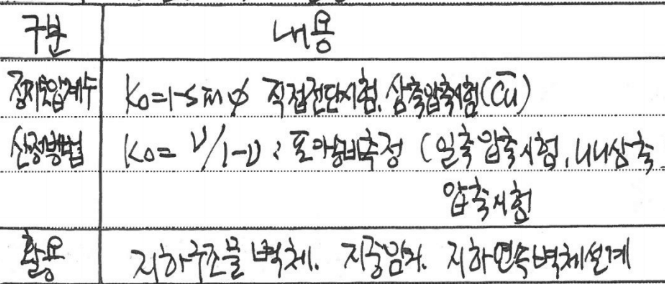 구분 내용
정지토압계수 K₀=1-sinφ 직접전단시험, 삼축압축시험(C̅U̅)
산정방법 K₀= ν/1-ν : 포아송비측정 (일축압축시험, UU삼축
압축시험
활용 지하구조물 벽체. 지중암거. 지하연속벽체설계